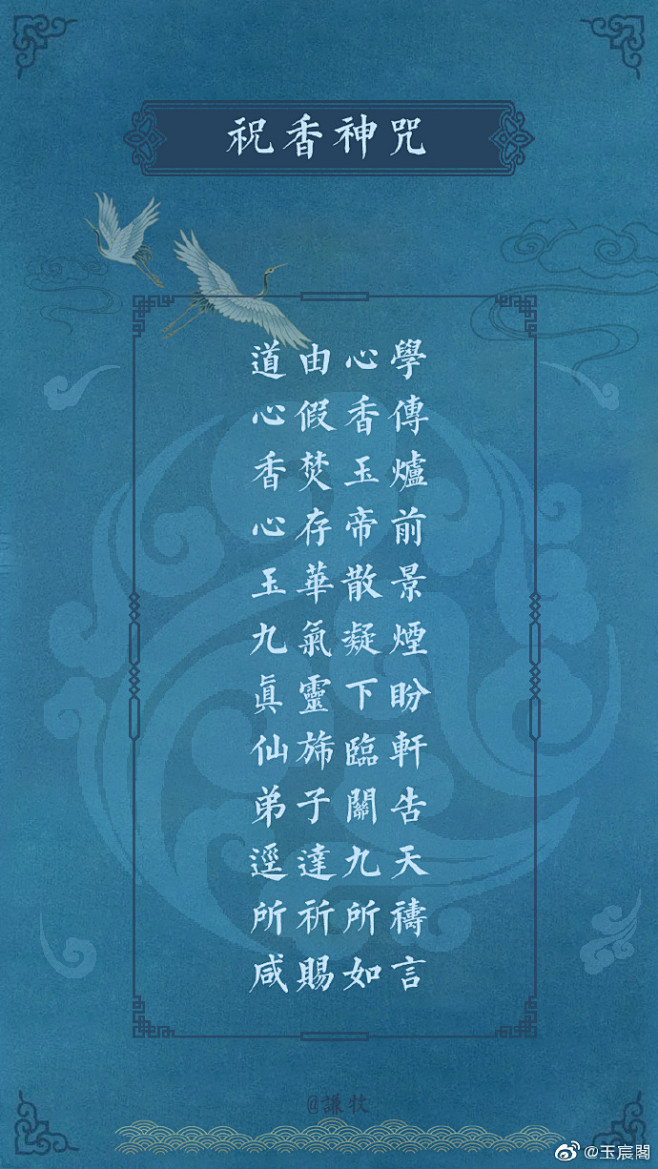 祝香神咒
道由心學
心假香傳
香焚玉爐
心存帝前
玉華散景
九氣凝煙
眞靈下盼
仙斾臨軒
弟子關告
逕達九天
所祈所禱
咸賜如言
@謙牧
@玉宸閣